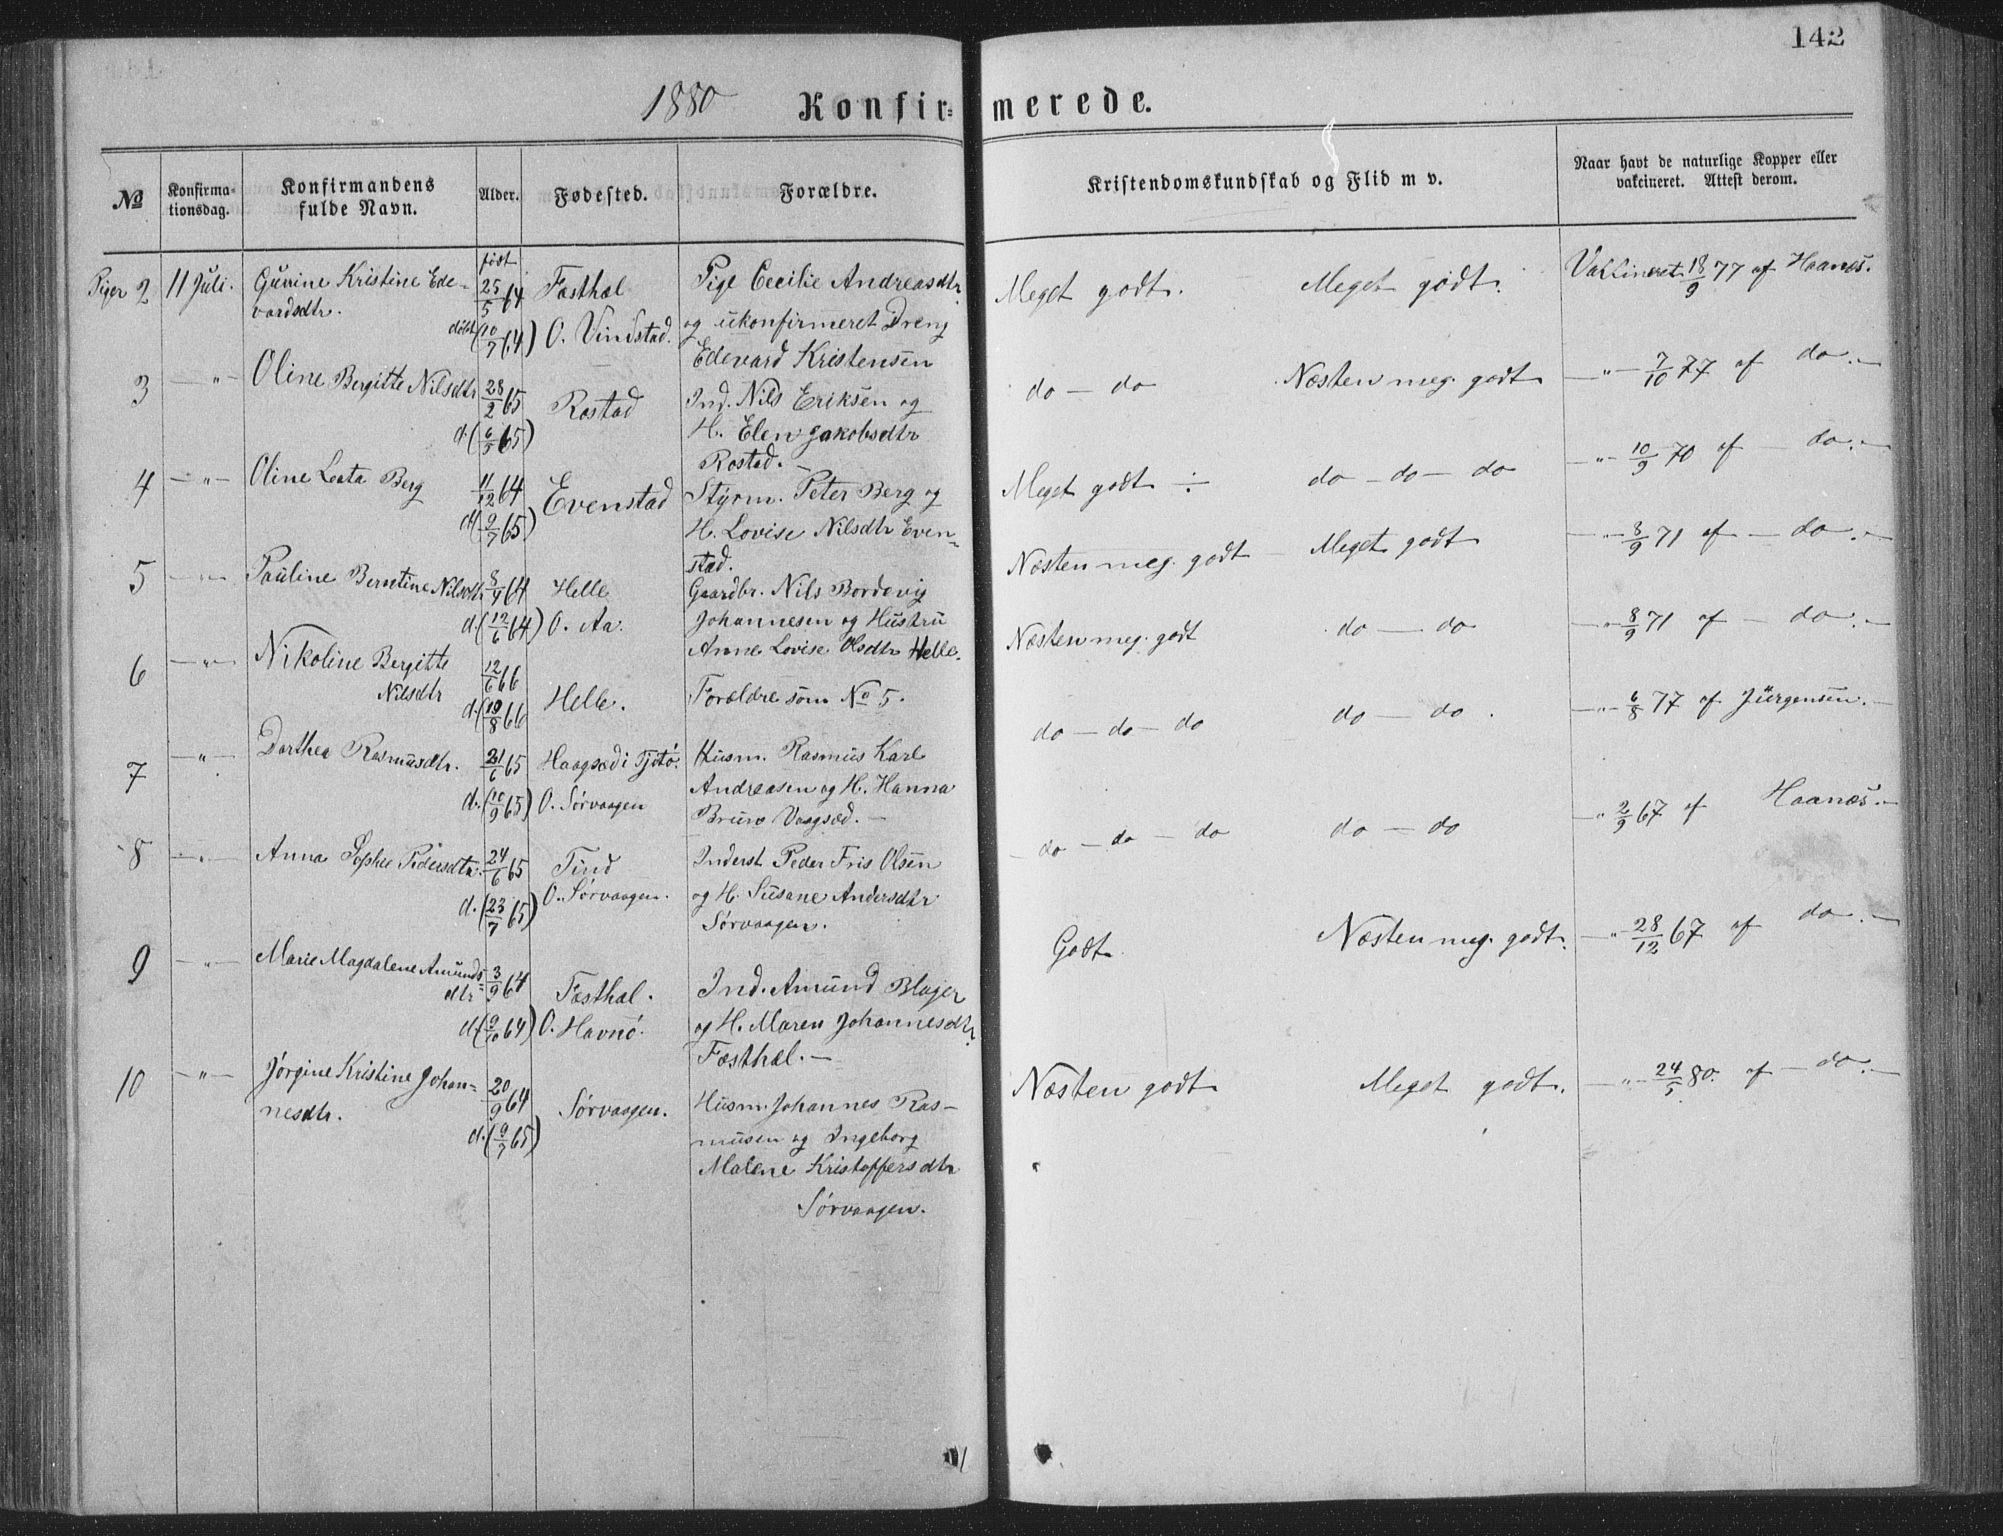 142
1880 Konfir= merede.
№ Konfirma= tionsdag. Konfirmandens fulde Navn. Alder. Fødested. Forældre. Kristendomskundskab og Flid m v. Naar havt de naturlige Kopper eller vakcineret. Attest derom.
født
Piger 2 11 Juli. Gurine Kristine Ede- 25/5 64 Fæsthæl Pige Cecilie Andreasdtr. Meget godt. Meget godt. Vakcineret 18/9 77 af Haanæs.
vardsdtr. døbt (10/7 64) O. Vindstad. og ukonfirmeret Dreng
Edevard Kristensen
3 — " — Oline Bergitte Nilsdtr 28/2 65 Rostad Ind. Nils Eriksen og do — do Næsten meg. godt — " — 7/10 77 af do. —
d. (6/5 65) H. Elen Jakobsdtr
Rostad. —
4 — " — Oline Leata Berg 11/12 64 Evenstad Styrm. Peter Berg og Meget godt ÷ do — do — do — " — 10/9 70 af — do. —
d. (9/7 65) H. Lovise Nilsdtr Even-
stad.
5 — " — Pauline Berntine Nilsdtr 8/4 64 Helle Gaardbr. Nils Bordevig Næsten meg. godt — Meget godt — " — 8/9 71 af — do. —
d. (12/6 64) O. Aa. Johannesen og Hustru
Anne Lovise Olsdtr Helle.
6 — " — Nikoline Bergitte 12/6 66 Helle. Forældre som No 5. Næsten meg. godt do — do — " — 8/9 71 af — do. —
Nilsdtr d. (19/8 66)
7 — " — Dorthea Rasmusdtr. 21/6 65 Haagsæd i Tjøtø. Husm. Rasmus Karl do — do — do do — do. — " — 6/8 77 af Jürgensen. —
d. (10/9 65) O. Sørvaagen Andreasen og H. Hanna
Bruun Vaagsæd. —
8 — " — Anna Sophie Pedersdtr. 24/6 65 Tind Inderst Peder Fris Olsen — do — do — do do — do — " 2/9 67 af Haanæs. —
d. (23/7 65) O. Sørvaagen. og H. Susane Andersdtr
Sørvaagen.
9 — " — Marie Magdalene Amunds- 3/9 64 Fæsthæl. Ind. Amund Blager Godt. Næsten meg. godt. — " — 28/12 67 af do. —
dtr d. (9/10 64) O. Havnø. og H. Maren Johannesdtr.
Fæsthæl. —
10 — " — Jørgine Kristine Johan- 20/9 64 Sørvaagen. Husm. Johannes Ras- Næsten godt Meget godt. — " — 24/5 80. af — do. —
nesdtr. d. (9/7 65) musen og Ingeborg
Malene Kristoffersdtr
Sørvaagen.